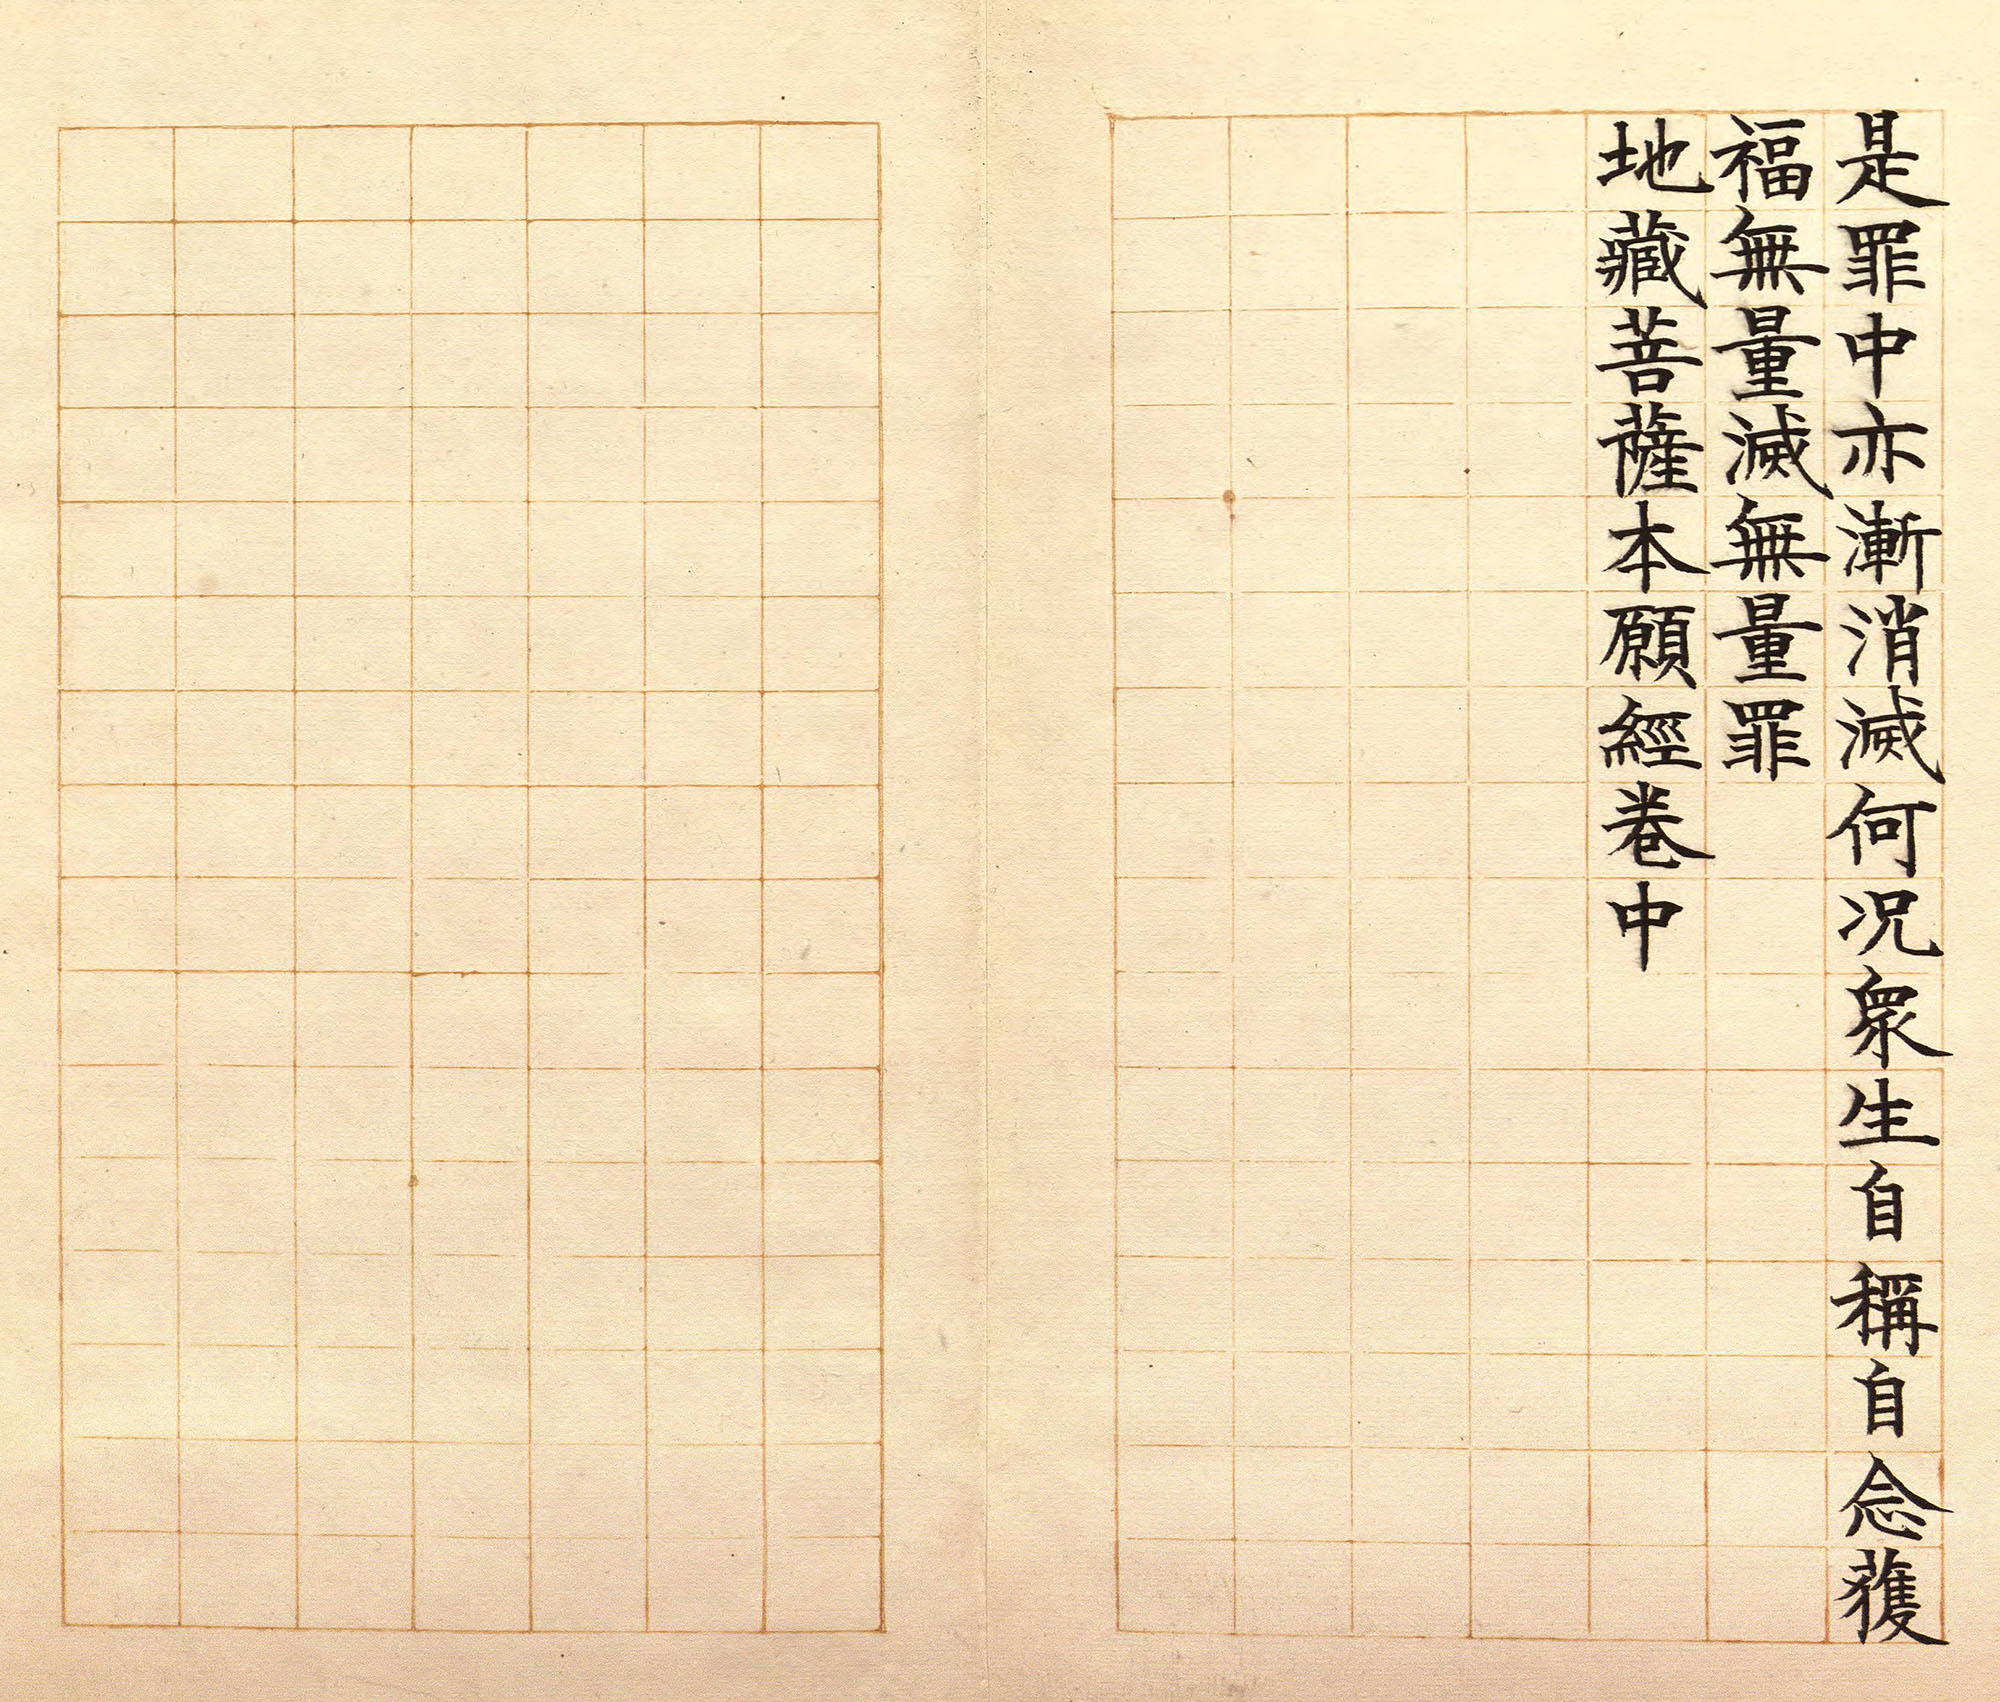 是罪中亦漸消滅何況眾生自稱自念獲
福無量滅無量罪
地藏菩薩本願經卷中